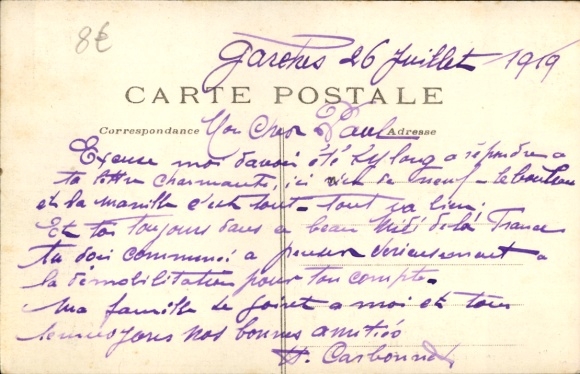 8€
Garches 26 Juillet 1919
CARTE POSTALE
Correspondance Adresse
Mon Cher Paul
Excuse moi davoir été si long a répondre a
ta lettre charmante, ici rien de neuf - le boulou
et la manille c'est tout - tout va bien.
Et toi toujours dans a beau Midi de la France
tu dois commencé a penser serieusement a
la démobilitation pour ton compte.
Ma famille se joint a moi et tous
tenvoyons nos bonnes amitiés
H. Carbonn